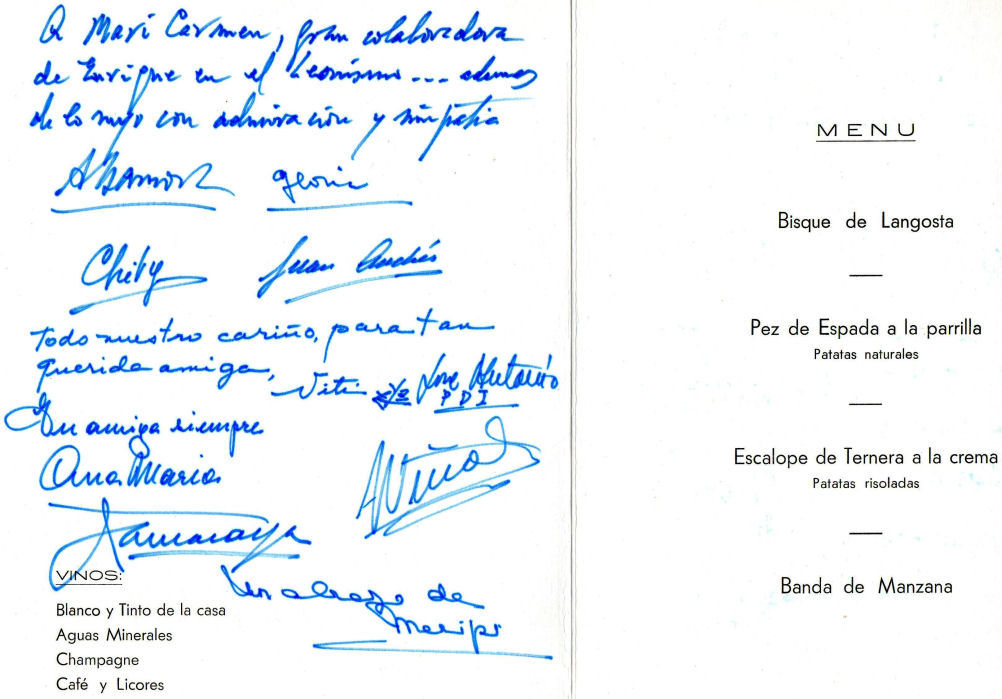 A Mari Carmen, gran colaboradora
de Enrique en el Leonismo... ademas
de lo suyo con admiración y simpatia
Gloria
Chity Juan Andrés
Todo nuestro cariño, para tan
querida amiga,
Viti y José Antonio
PDI
Tu amiga siempre
Ana Maria
Un abrazo de
Maripi
VINOS:
Blanco y Tinto de la casa
Aguas Minerales
Champagne
Café y Licores
MENU
Bisque de Langosta
Pez de Espada a la parrilla
Patatas naturales
Escalope de Ternera a la crema
Patatas risoladas
Banda de Manzana